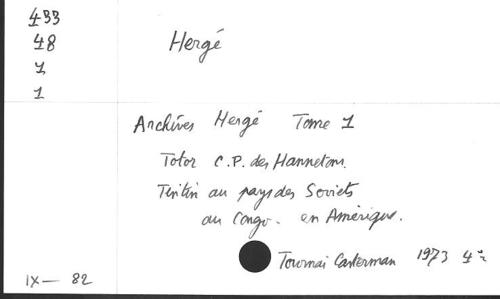 433
48
1
1
Hergé
Archives Hergé Tome 1
Totor C.P. des Hannetons.
Tintin au pays des Soviets
au Congo - en Amérique.
Tournai Casterman 1973 4°
IX — 82